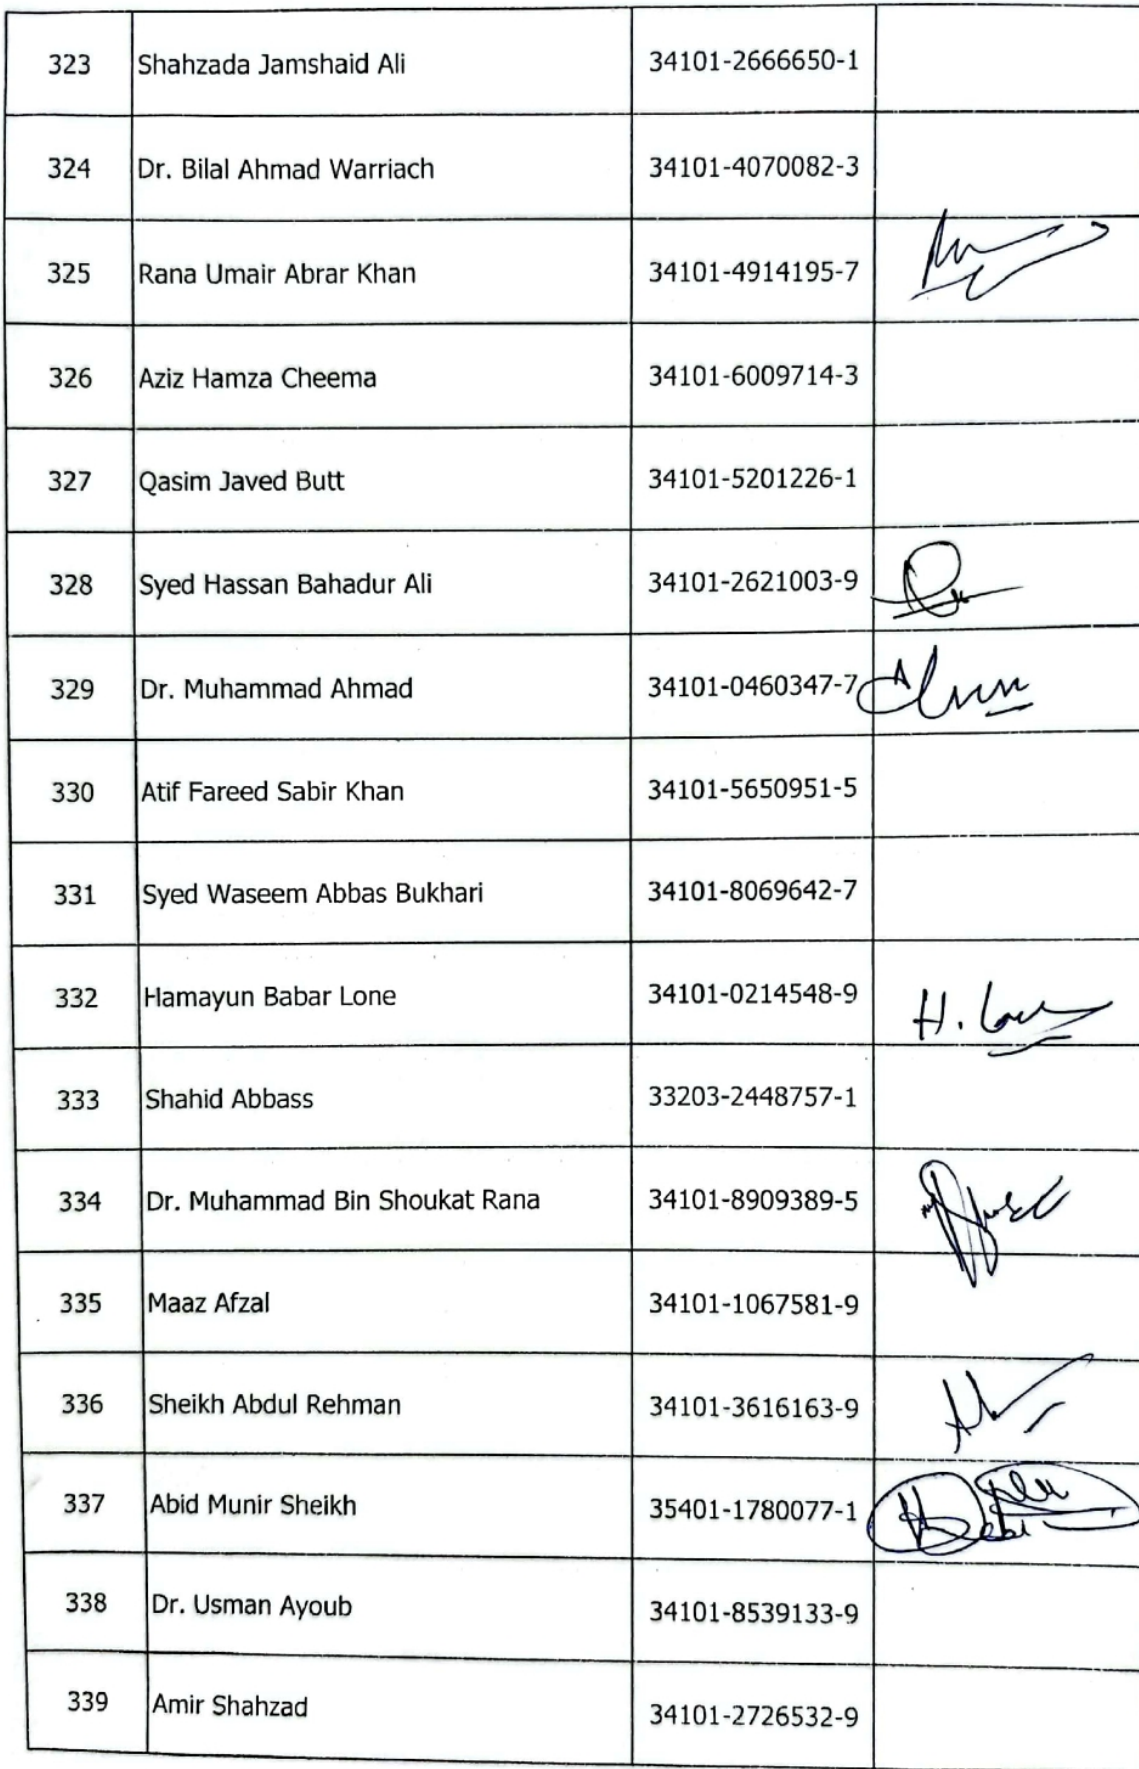 323 Shahzada Jamshaid Ali 34101-2666650-1
324 Dr. Bilal Ahmad Warriach 34101-4070082-3
325 Rana Umair Abrar Khan 34101-4914195-7
326 Aziz Hamza Cheema 34101-6009714-3
327 Qasim Javed Butt 34101-5201226-1
328 Syed Hassan Bahadur Ali 34101-2621003-9
329 Dr. Muhammad Ahmad 34101-0460347-7
330 Atif Fareed Sabir Khan 34101-5650951-5
331 Syed Waseem Abbas Bukhari 34101-8069642-7
332 Hamayun Babar Lone 34101-0214548-9 H.
333 Shahid Abbass 33203-2448757-1
334 Dr. Muhammad Bin Shoukat Rana 34101-8909389-5
335 Maaz Afzal 34101-1067581-9
336 Sheikh Abdul Rehman 34101-3616163-9
337 Abid Munir Sheikh 35401-1780077-1
338 Dr. Usman Ayoub 34101-8539133-9
339 Amir Shahzad 34101-2726532-9